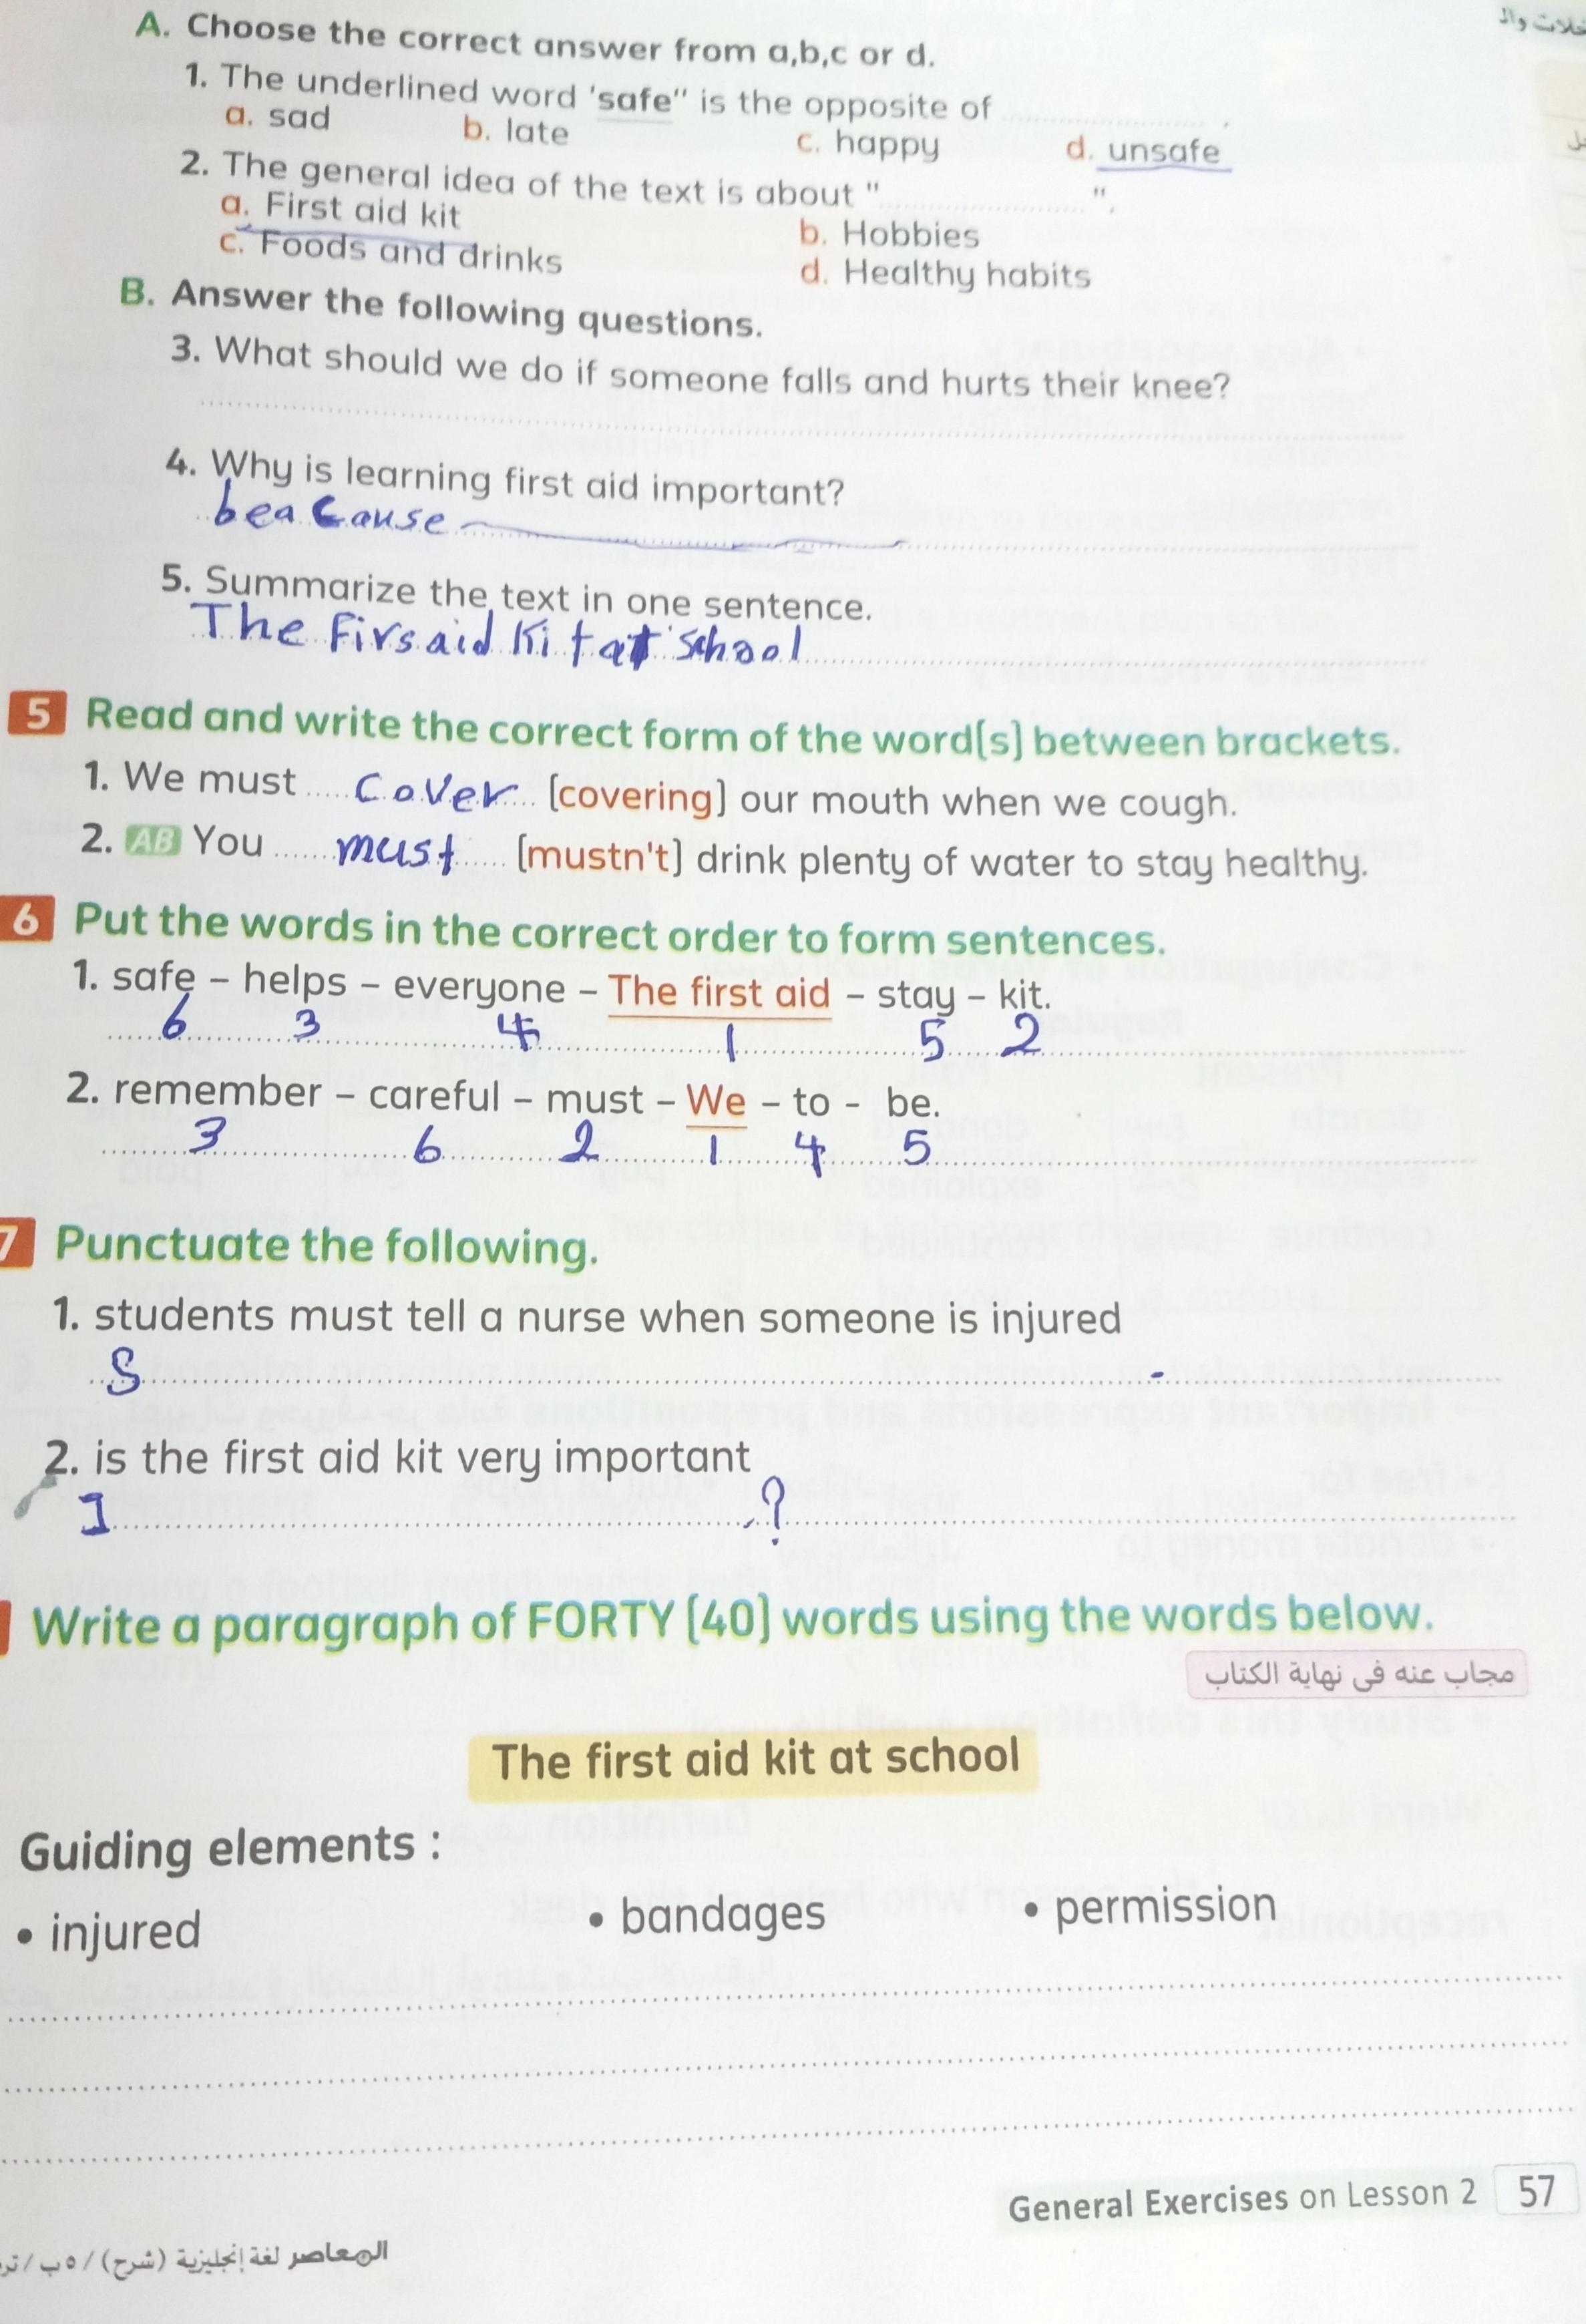 A. Choose the correct answer from a,b,c or d.
1. The underlined word 'safe" is the opposite of .................... .
a. sad b. late c. happy d. unsafe
2. The general idea of the text is about "....................".
a. First aid kit b. Hobbies
c. Foods and drinks d. Healthy habits
B. Answer the following questions.
3. What should we do if someone falls and hurts their knee?
4. Why is learning first aid important?
beacause
5. Summarize the text in one sentence.
The Firs aid Kit at school
5 Read and write the correct form of the word(s) between brackets.
1. We must ..... cover ..... (covering) our mouth when we cough.
2. AB You ..... must ..... (mustn't) drink plenty of water to stay healthy.
6 Put the words in the correct order to form sentences.
1. safe – helps – everyone – The first aid – stay – kit.
6 3 4 1 5 2
2. remember – careful – must – We – to - be.
3 6 2 1 4 5
7 Punctuate the following.
1. students must tell a nurse when someone is injured
S .
2. is the first aid kit very important
I ?
Write a paragraph of FORTY (40) words using the words below.
مجاب عنه فى نهاية الكتاب
The first aid kit at school
Guiding elements :
• injured • bandages • permission
General Exercises on Lesson 2 57
المعاصر لغة إنجليزية (شرح) / ٥ ب /